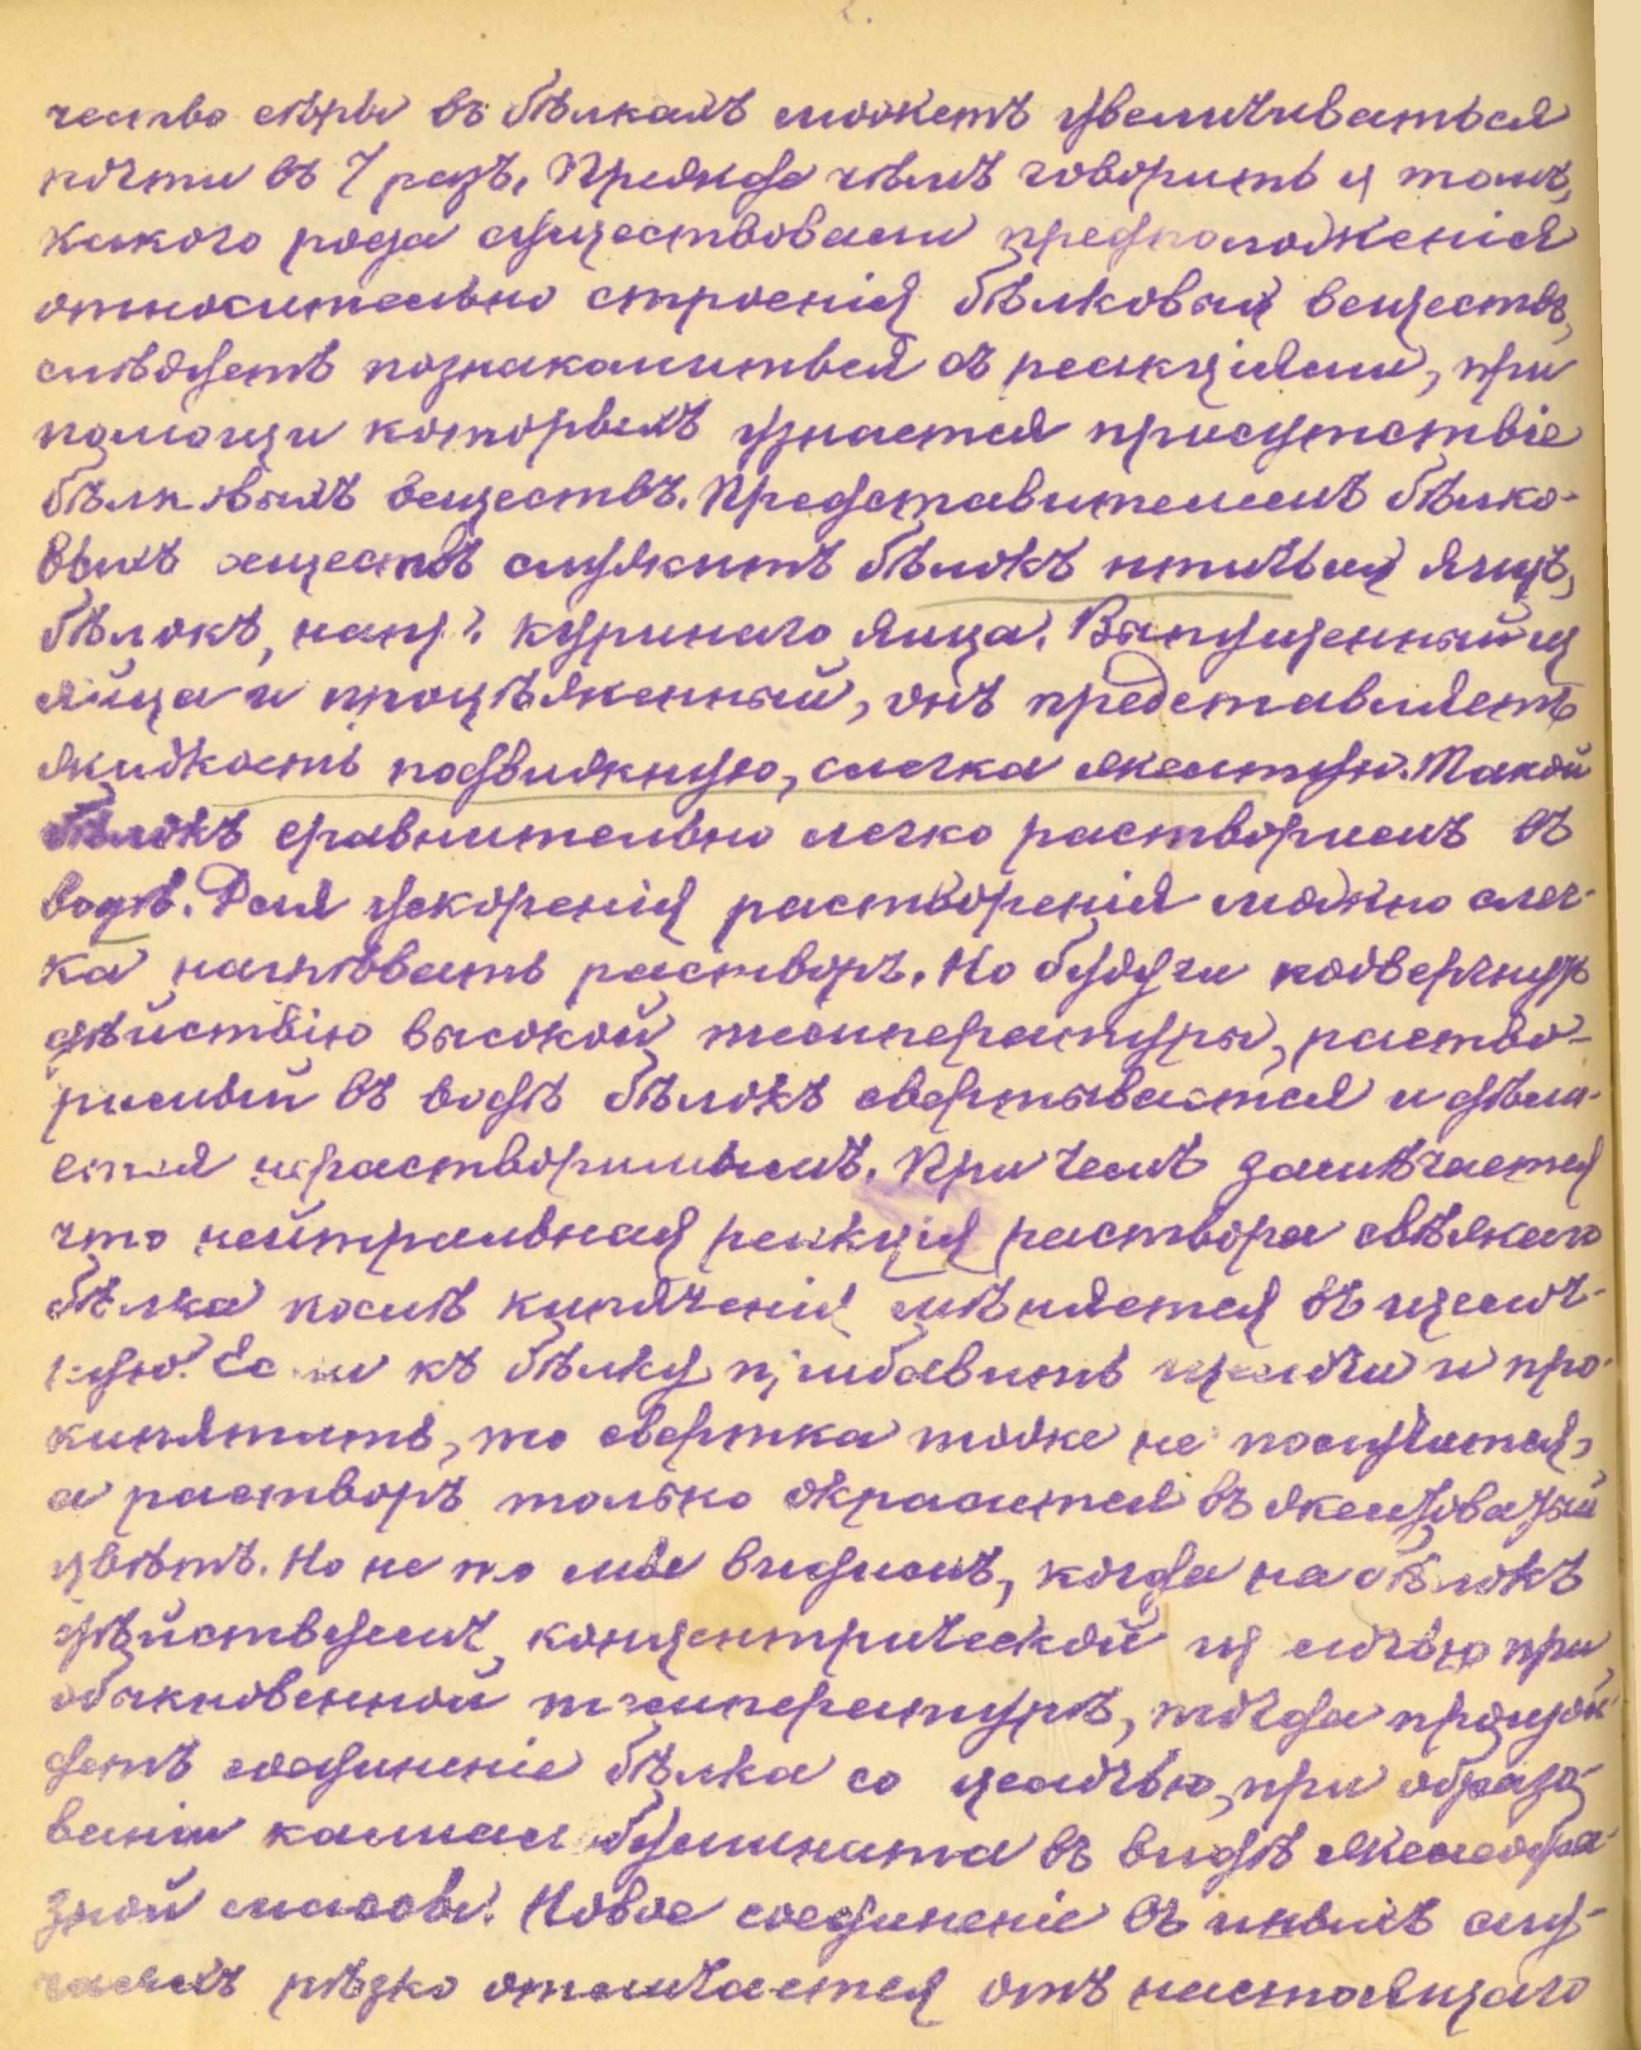 чество сѣры въ бѣлкахъ можетъ увеличиваться
почти въ 7 разъ. Прежде чѣмъ говорить о томъ,
какого рода существовали предположенія
относительно строенія бѣлковыхъ веществъ,
слѣдуетъ познакомиться съ реакціями, при
помощи которыхъ узнается присутствіе
бѣлковыхъ веществъ. Представителемъ бѣлко-
выхъ веществъ служитъ бѣлокъ птичьихъ яицъ,
бѣлокъ, напр. куринаго яица. Выпущенный из
яйца и процѣженный, онъ представляетъ
жидкость подвижную, слегка желтую. Такой
бѣлокъ сравнительно легко растворимъ въ
водѣ. Для ускоренія растворенія можно слег-
ка нагрѣвать растворъ. Но будучи подвергнутъ
дѣйствію высокой температуры, раство-
римый въ водѣ бѣлокъ свертывается и дѣла-
ется нерастворимымъ. При чемъ замѣчается
что нейтральная реакція раствора свѣжаго
бѣлка послѣ кипяченія мѣняется въ щелоч-
ную. Если къ бѣлку прибавить щелочи и про-
кипятить, то свертка тоже не получится,
а растворъ только окрасится въ желтоватый
цвѣтъ. Но не то мы видимъ, когда на бѣлокъ
дѣйствуемъ концентрической щелочью при
обыкновенной температурѣ, тогда произой-
детъ соединеніе бѣлка со щелочью, при образо-
ваніи калиал бумината въ видѣ желеобра-
зной массы. Новое соединеніе въ иныхъ слу-
чаяхъ рѣзко отличается отъ настоящаго